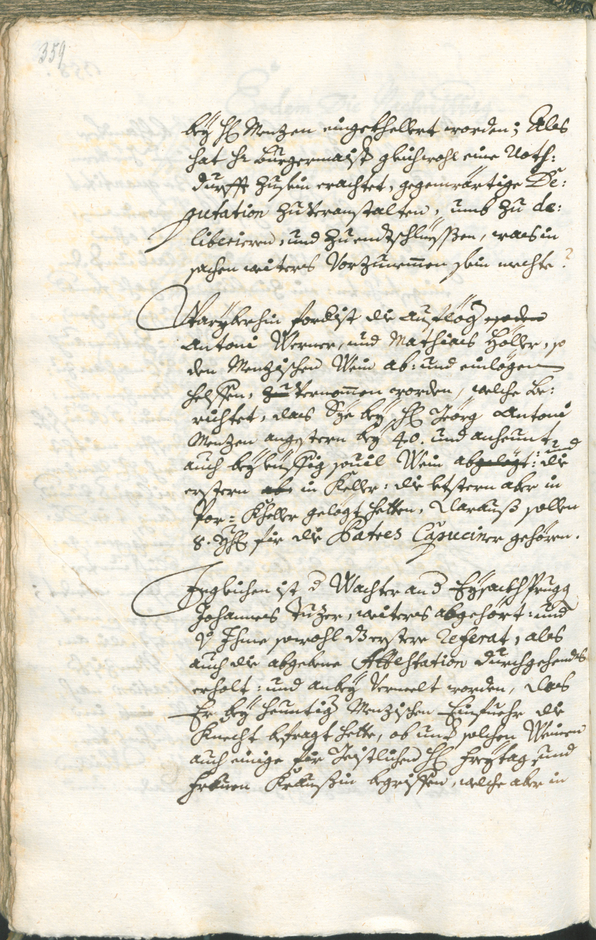 359
bey H: Menzen eingekhellert worden; Als
hat H: Burgermaister gleichwohl eine Noth:
durfft zusein erachtet, gegenwärtige De:
putation zuveranstalten, umb zu de:
liberieren, und zu entschlüssen, was in
sachen weiters vorzunemmen sein mechte.
Warÿberhin die Aufleg
Antoni Werner, und Mathias Höller, so
den Menzischen Wein ab: und einlögen
helffen, vernommen worden, welche be:
richtet, das Sye bey H: Jörg Antoni
Menzen angestern bey 40. und anheunt
auch bey souil Wein abgelögt: die
erstern in Keller: die letstern aber in
Vor= Kheller gelögt hetten, Darauß sollen
8. für die Patres Capuciner gehören.
Ingleichen ist d Wachter an d Eysackhprugg
Johannes weiters abgehört: und
v Ihme sowohl erstere Referat, als
auch die abgebene Attestation durchgehendts
erholt: und anbey vermelt worden, das
Er bey heuntig Menzischen Einfuehr die
Knecht befragt hette, ob und solchen Weinen
auch einige für Geistlichen H: Freytag, und
Frauen begriffen, welche aber in